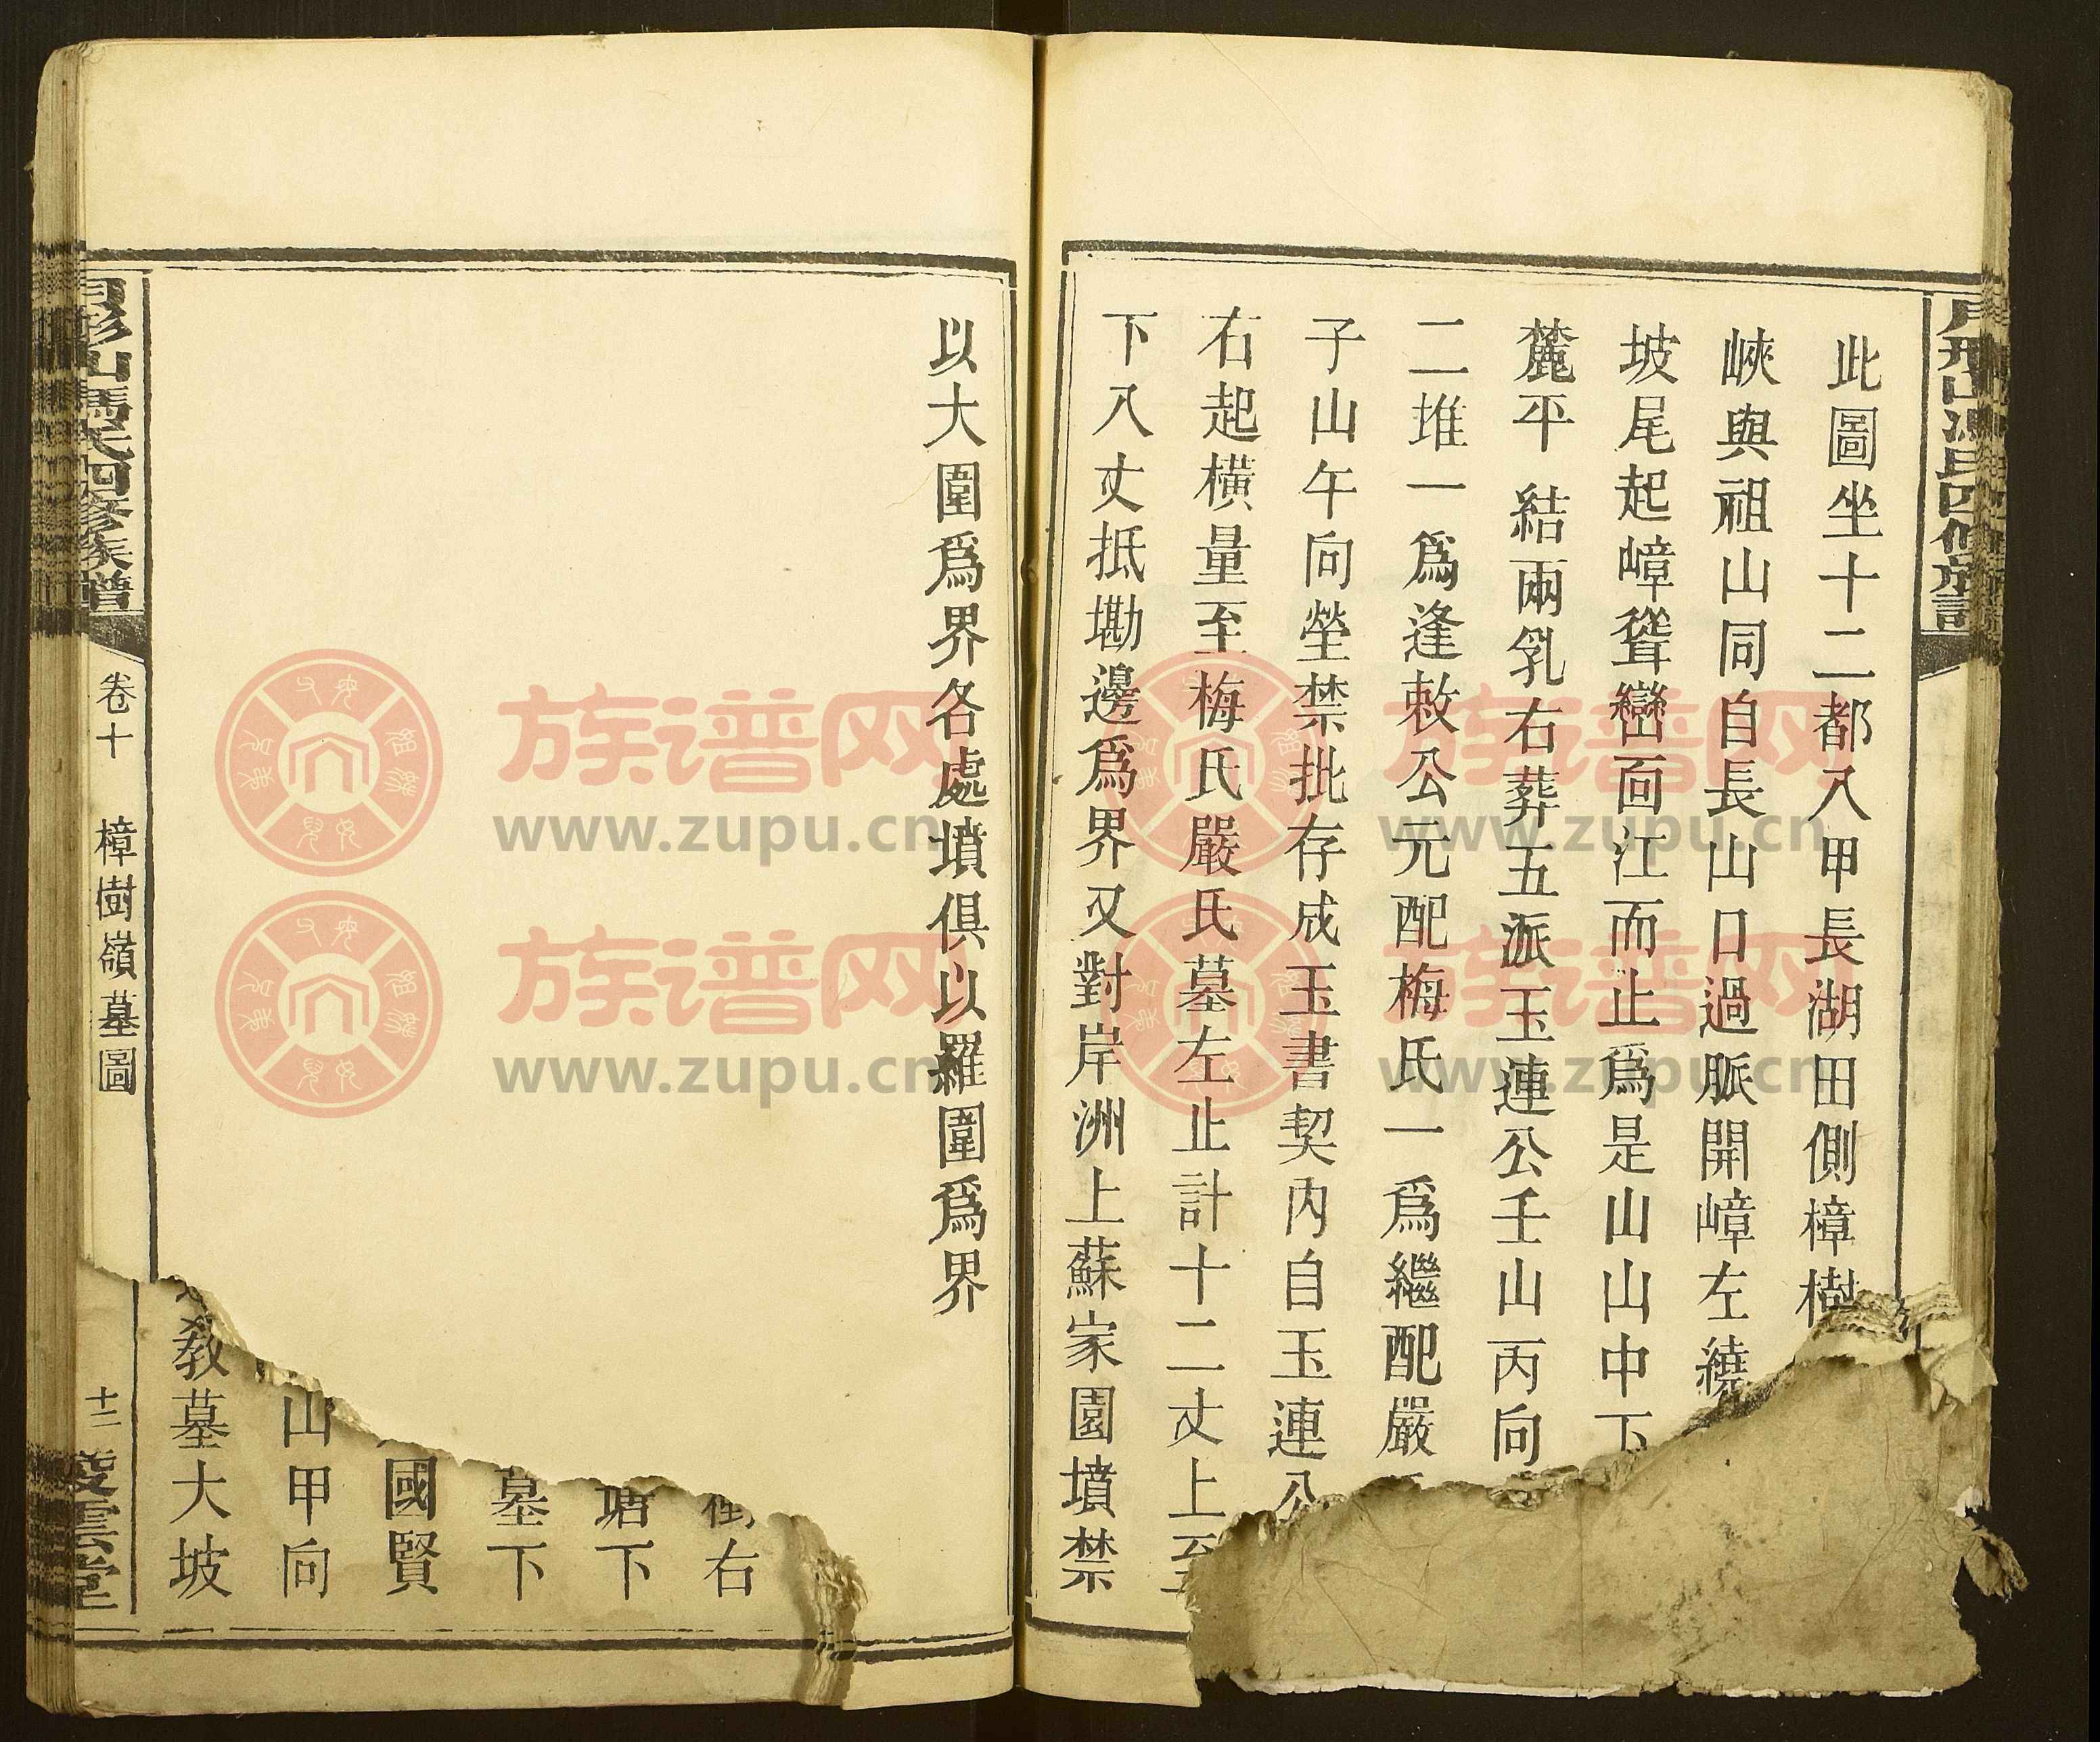 此圖坐十二都八甲長湖田側樟樹
峽與祖山同自長山口過脈開嶂左繞
坡尾起嶂聳巒面江而止爲是山山中下
麓平結兩乳右葬五派玉連公壬山丙向
二堆一爲逢敕公元配梅氏一爲繼配嚴
子山午向塋禁批存成玉書契內自玉連公
右起橫量至梅氏嚴氏墓左止計十二丈上至
下八丈抵墈邊爲界又對岸洲上蘇家園墳禁
以大圍爲界各處墳俱以羅圍爲界
右
塘下
墓下
國賢
山甲向
教墓大坡
月形山馮氏四修族譜
卷十
樟樹嶺墓圖
十二
雲堂
族谱网
www.zupu.cn
族谱网
www.zupu.cn
族谱网
www.zupu.cn
族谱网
www.zupu.cn